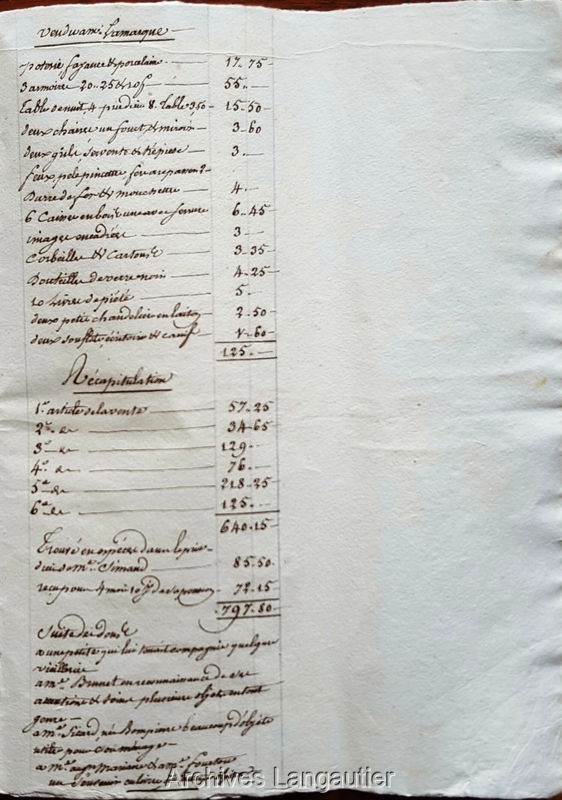 Vendu a m. Lamarque
poterie fayance & porcelain 17-75
3 armoire 20.. 25 & 10f 55..
table de nuit, 4 8. table 3,50 15-50
deux chaises un fouet, & miroir 3-60
deux servente & trépiese 3..
feux, pele pincette,
Barre de fer & mouchette 4..
6 Caisse en bois une avec serrure 6-45
image encadrée 3..
Corbeille & cartons 3-35
Bouteille de verre noir 4-25
10 Livre de piété 5..
deux petit chandelier en laiton 2-50
deux soufflets écritoire & canif 1-60
125..
Récapitulation
1er article de la vente 57-25
2e do 34-65
3e do 129..
4e do 76..
5e do 218-25
6e do 125..
640-15
Trouvé en espèce dans
Simand 85-50
reçu pour 4 moi 10 j. de sa pension 72-15
797-80
Suite des dons
a une petite qui lui tenait compagnie quelque
vieillerie
a me. Brunet en reconnaissance de ses
attentions & soins plusieurs objets en tout
genre
a me. Sicard née Bompierre beaucoup d'objets
utile pour son ménage
a me. Mariane & a me.
un Souvenir
Archives Langautier